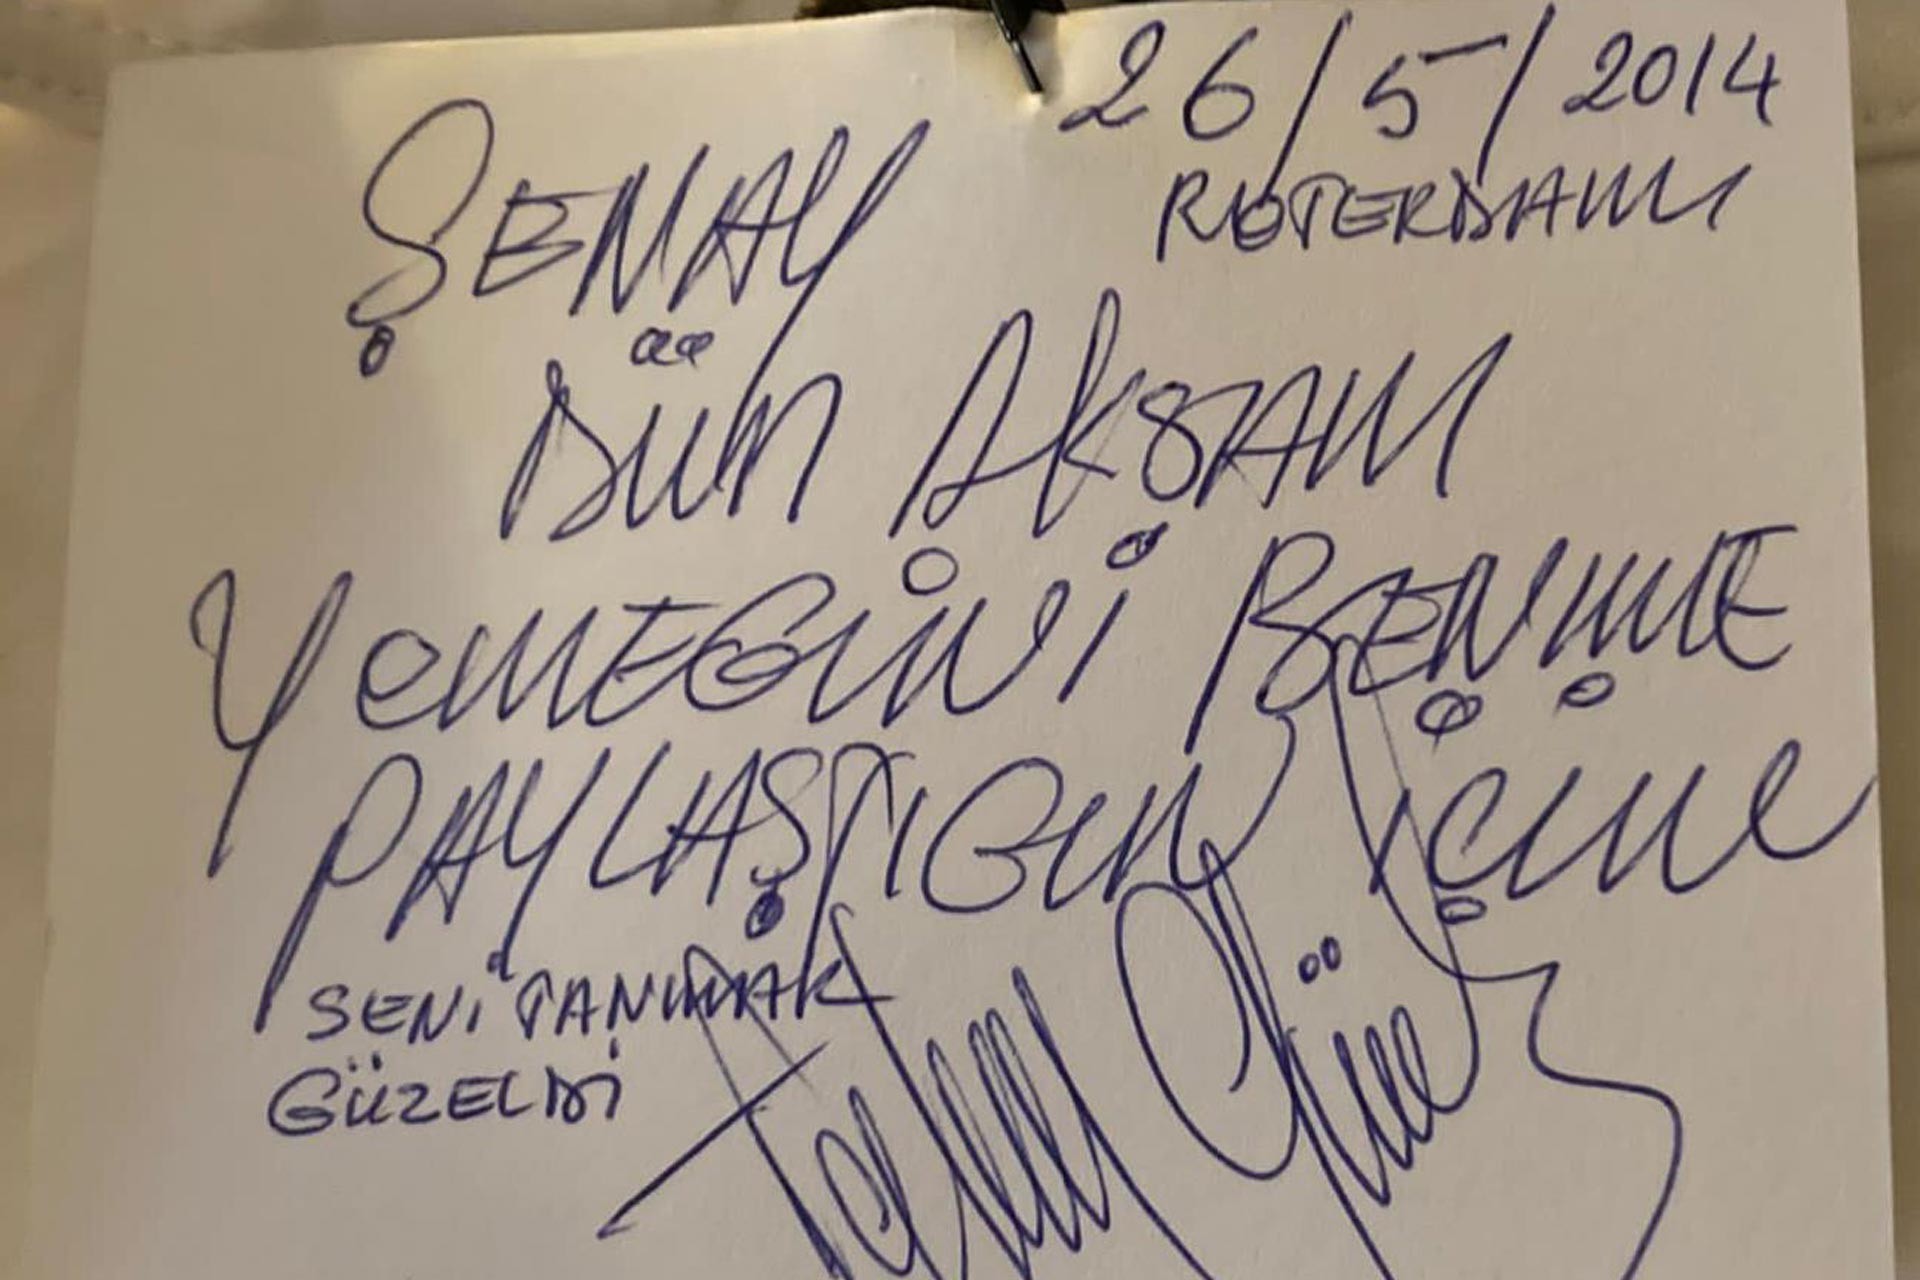 26/5/2014
ROTERDAM
ŞENAY
DÜN AKŞAM
YEMEGİNİ BENİMLE
PAYLAŞTIGIN İÇİN
SENİ TANIMAK
GÜZELDİ